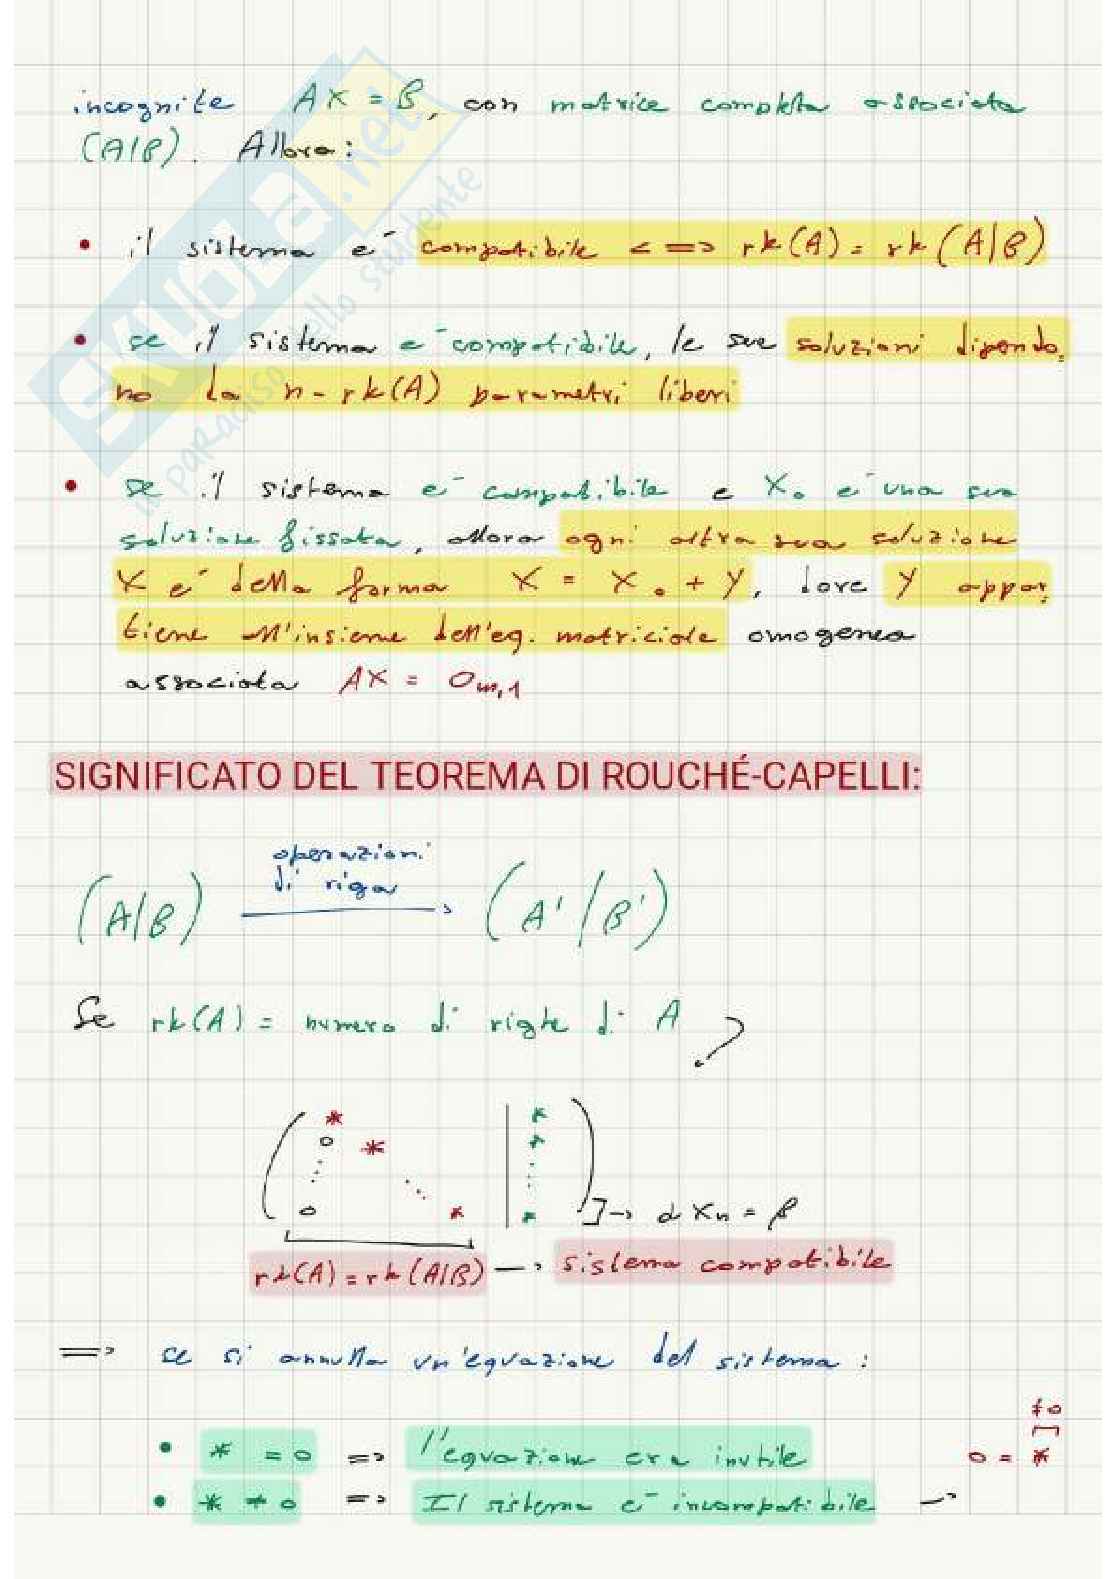 incognite AX = B, con matrice completa associata
(A|B). Allora:
• il sistema e' compatibile <=> rk(A) = rk(A|B)
• se il sistema e' compatibile, le sue soluzioni dipendo_
no da n - rk(A) parametri liberi
• se il sistema e' compatibile e X₀ e' una sua
soluzione fissata, allora ogni altra sua soluzione
X e' della forma X = X₀ + Y, dove Y appar_
tiene all'insieme dell'eq. matriciale omogenea
associata AX = 0m,1
SIGNIFICATO DEL TEOREMA DI ROUCHÉ-CAPELLI:
operazioni
di riga
(A|B) → (A'|B')
Se rk(A) = numero di righe di A ?
* *
0 * *
⋮ ⋱ ⋮
0 * * ]→ α Xn = β
rk(A) = rk(A|B) → sistema compatibile
=> se si annulla un'equazione del sistema:
≠0
• * = 0 => l'equazione era inutile 0 = *
• * ≠ 0 => Il sistema e' incompatibile →
SKUOLA.net
il paradiso dello studente